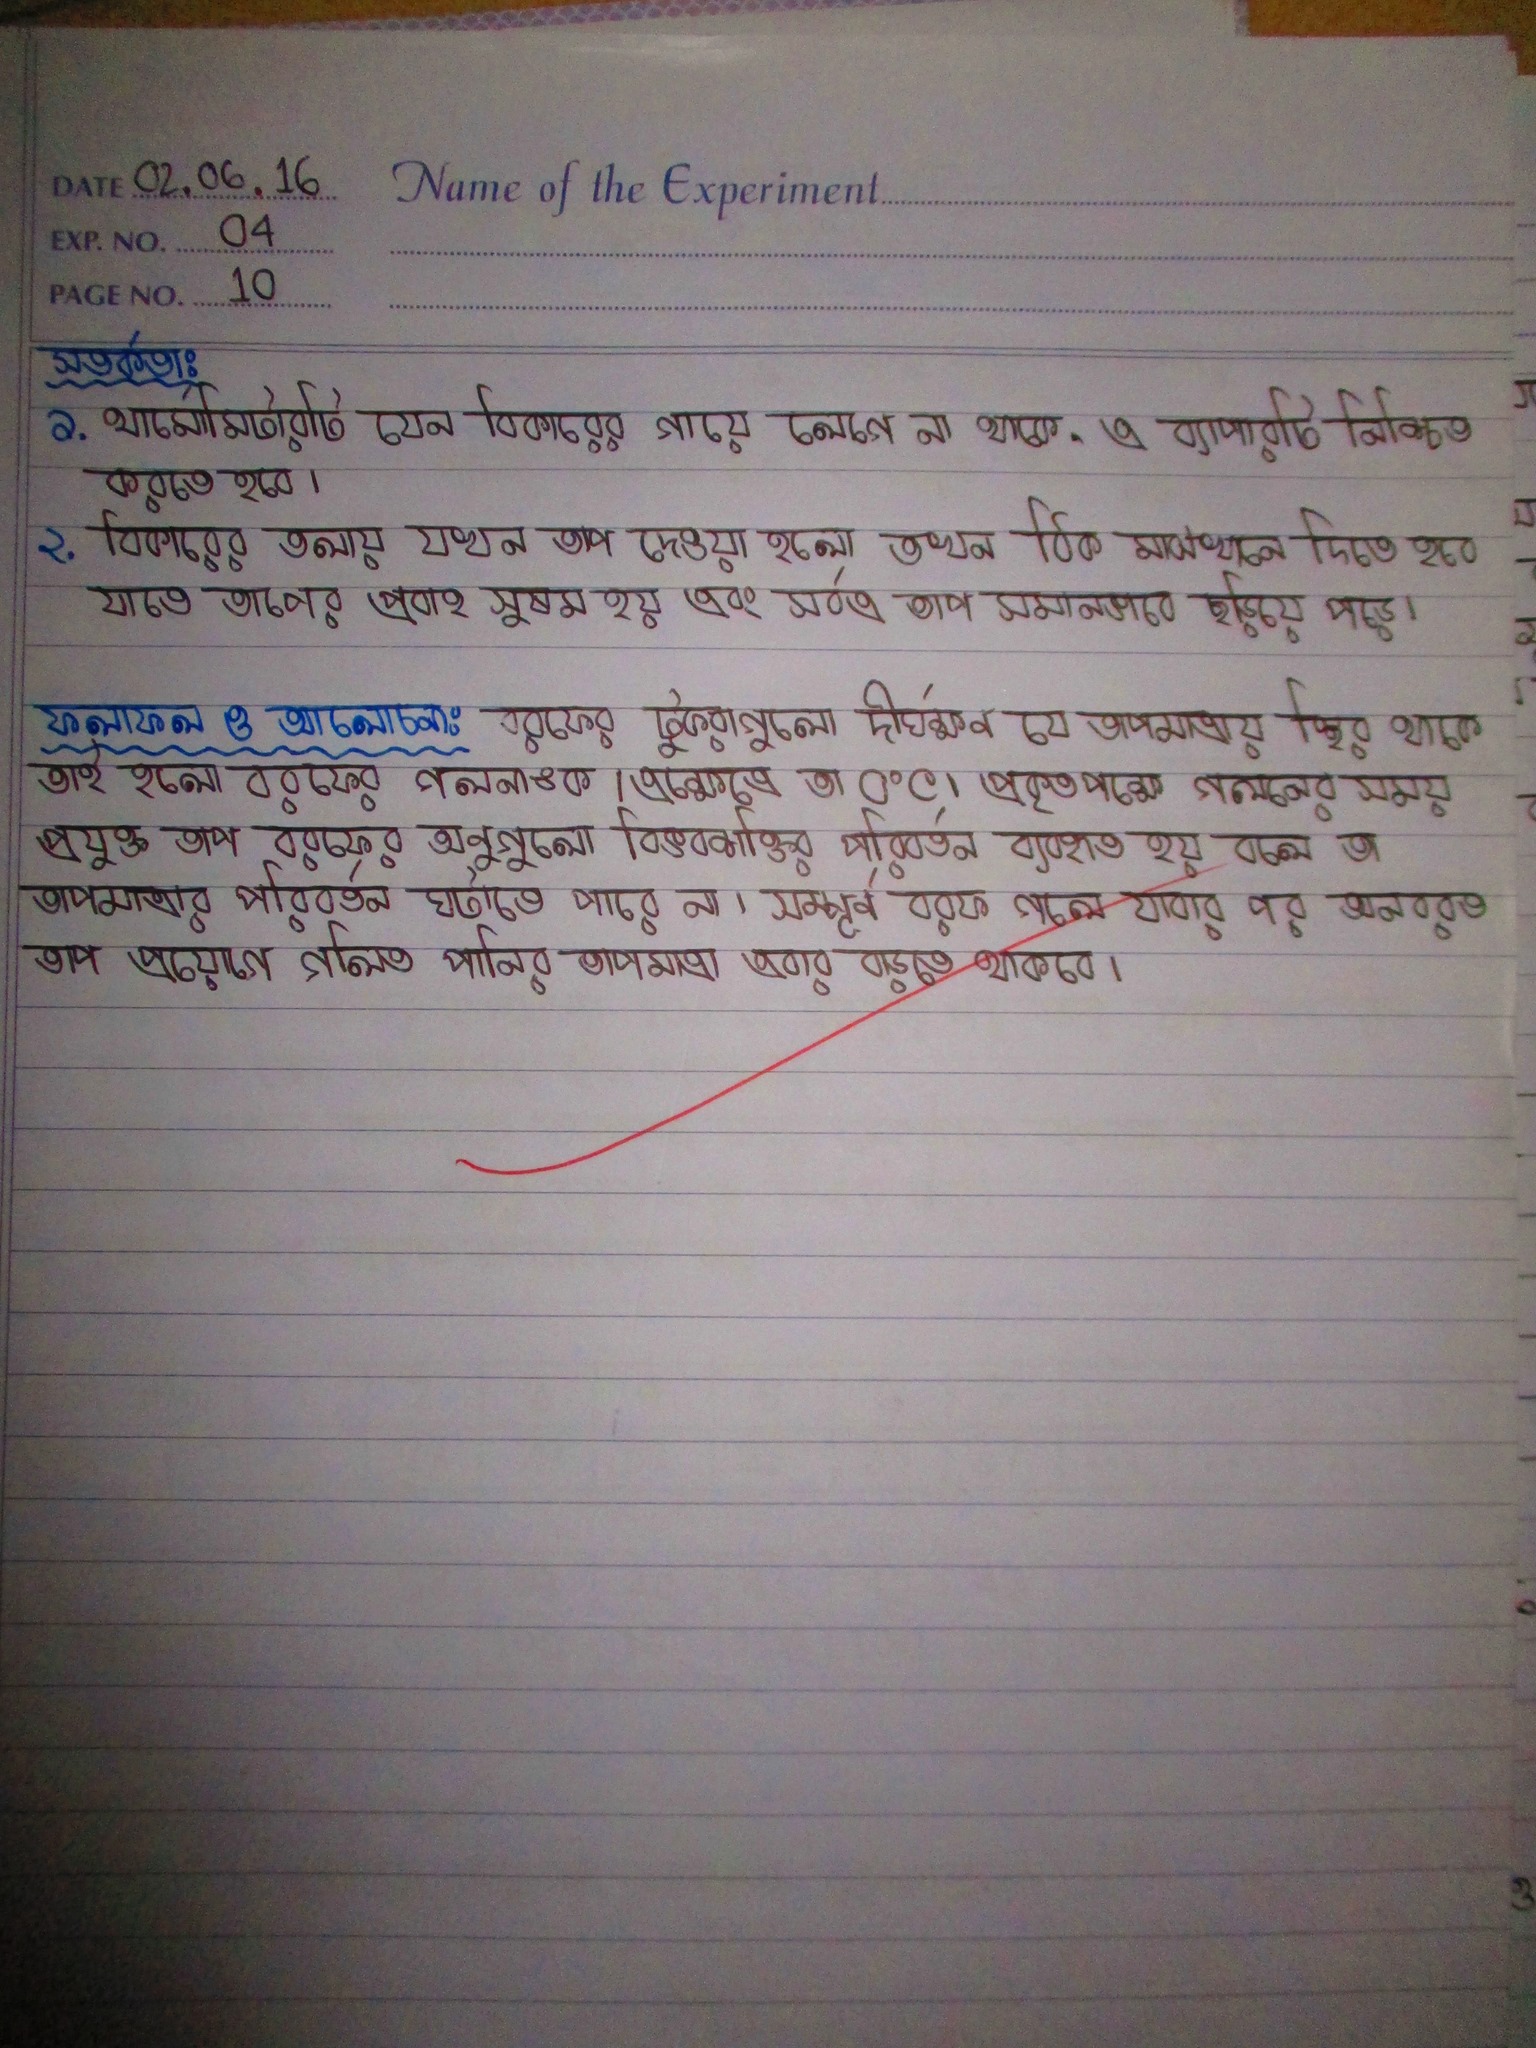 DATE 02.06.16 Name of the Experiment
EXP. NO. 04
PAGE NO. 10
সতর্কতাঃ
১. থার্মোমিটারটি যেন বিকারের গায়ে লেগে না থাকে. এ ব্যাপারটি নিশ্চিত
করতে হবে।
২. বিকারের তলায় যখন তাপ দেওয়া হলো তখন ঠিক মাঝখানে দিতে হবে
যাতে তাপের প্রবাহ সুষম হয় এবং সর্বত্র তাপ সমানভাবে ছড়িয়ে পড়ে।
ফলাফল ও আলোচনাঃ বরফের টুকরাগুলো দীর্ঘক্ষন যে তাপমাত্রায় স্থির থাকে
তাই হলো বরফের গলনাঙক। এক্ষেত্রে তা 0°C। প্রকৃতপক্ষে গলনের সময়
প্রযুক্ত তাপ বরফের অনুগুলো বিভবশক্তির পরিবর্তন ব্যবহৃত হয় বলে তা
তাপমাত্রার পরিবর্তন ঘটাতে পারে না। সম্পূর্ন বরফ গলে যাবার পর অনবরত
তাপ প্রয়োগে গলিত পানির তাপমাত্রা এবার বাড়তে থাকবে।